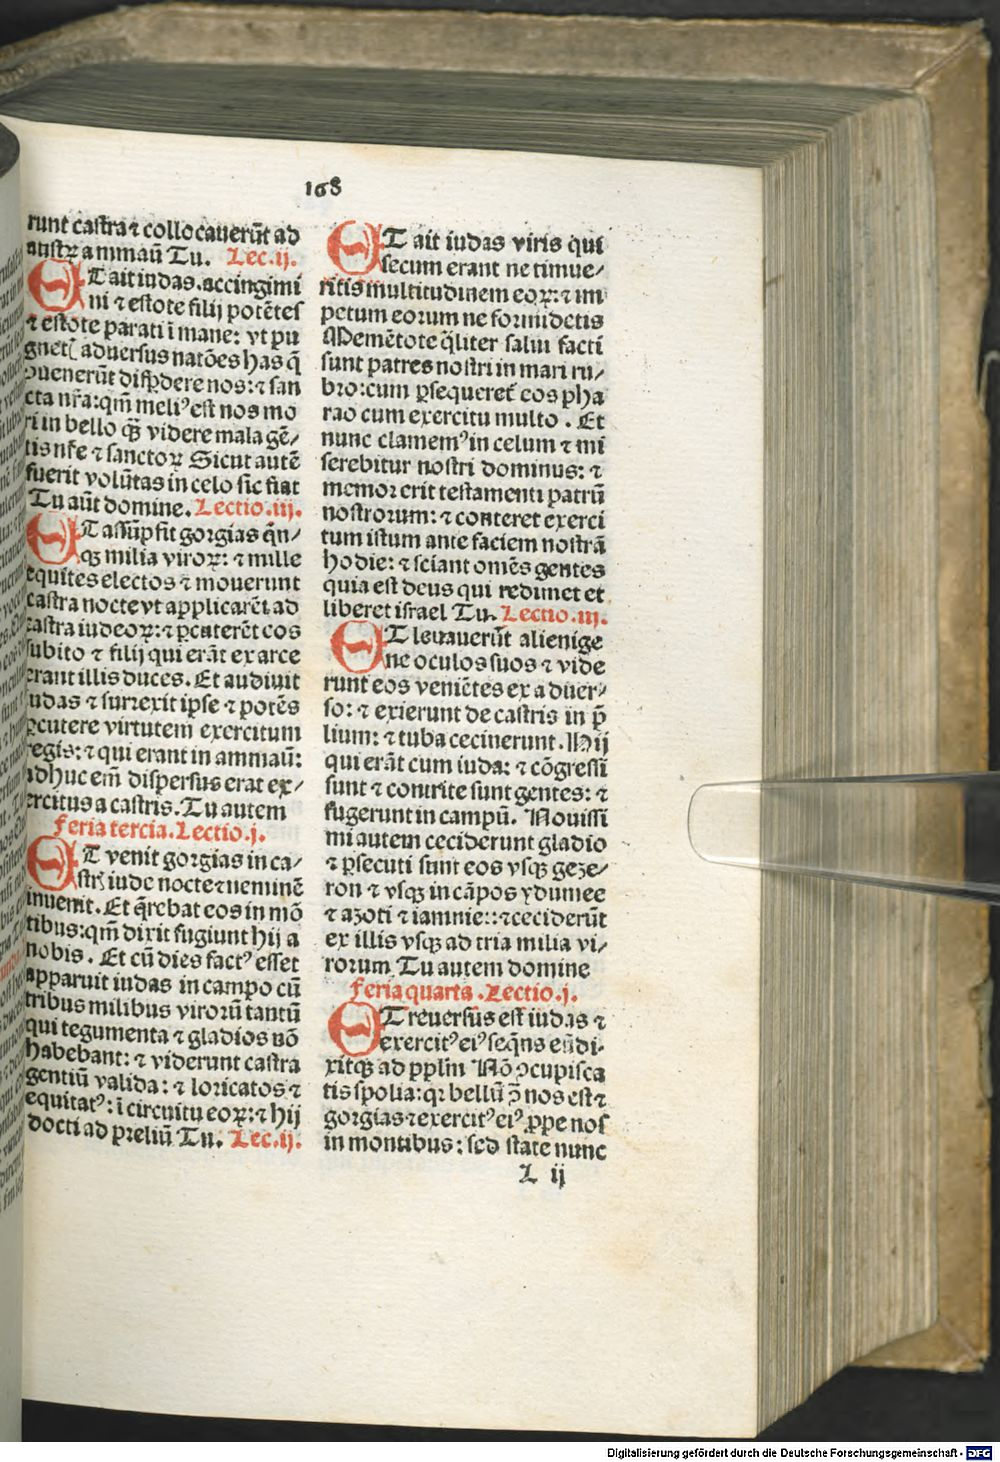 168
runt castra ⁊ collocauerūt ad
austrꝝ ammaū Tu. Lec.ij.
ET ait iudas. accingimi
ni ⁊ estote filij potētes
⁊ estote parati ī mane: vt pu
gnetꝭ aduersus natōes has q̄
ↄuenerūt disꝑdere nos: ⁊ san
cta nr̄a: qm̄ meliꝰ est nos mo
ri in bello qꝫ videre mala gē/
tis nr̄e ⁊ sanctoꝝ Sicut autē
fuerit volūtas in celo sic fiat
Tu aūt domine. Lectio.iij.
ET assūpsit gorgias q̄n/
qꝫ milia viroꝝ: ⁊ mille
equites electos ⁊ mouerunt
castra nocte vt applicarēt ad
castra iudeoꝝ: ⁊ ꝑcuterēt eos
subito ⁊ filij qui erāt ex arce
erant illis duces. Et audiuit
iudas ⁊ surrexit ipse ⁊ potēs
ꝑcutere virtutem exercitum
regis: ⁊ qui erant in ammaū:
adhuc em̄ dispersus erat ex/
ercitus a castris. Tu autem
Feria tercia. Lectio.j.
ET venit gorgias in ca/
strꝭ iude nocte ⁊ neminē
inuenit. Et q̄rebat eos in mō
tibus: qm̄ dixit fugiunt hij a
nobis. Et cū dies factꝰ esset
apparuit iudas in campo cū
tribus milibus virorū tantū
qui tegumenta ⁊ gladios nō
habebant: ⁊ viderunt castra
gentiū valida: ⁊ loricatos ⁊
equitatꝰ: ī circuitu eoꝝ: ⁊ hij
docti ad preliū Tu. Lec.ij.
ET ait iudas viris qui
secum erant ne timue/
ritis multitudinem eoꝝ: ⁊ im
petum eorum ne formidetis
Memētote q̄liter salui facti
sunt patres nostri in mari ru/
bro: cum ꝑsequeret̄ eos pha
rao cum exercitu multo. Et
nunc clamemꝰ in celum ⁊ mi
serebitur nostri dominus: ⁊
memor erit testamenti patrū
nostrorum: ⁊ conteret exerci
tum istum ante faciem nostrā
hodie: ⁊ sciant om̄es gentes
quia est deus qui redimet et
liberet israel Tu. Lectio.iij.
ET leuauerūt alienige
ne oculos suos ⁊ vide
runt eos veniētes ex aduer/
so: ⁊ exierunt de castris in p̄
lium: ⁊ tuba cecinerunt. Hij
qui erāt cum iuda: ⁊ cōgressi
sunt ⁊ contrite sunt gentes: ⁊
fugerunt in campū. Nouissi
mi autem ceciderunt gladio
⁊ ꝑsecuti sunt eos vsqꝫ geze/
ron ⁊ vsqꝫ in cāpos ydumee
⁊ azoti ⁊ iamnie:: ⁊ ceciderūt
ex illis vsqꝫ ad tria milia vi/
rorum Tu autem domine
Feria quarta. Lectio.j.
ET reuersus est iudas ⁊
exercitꝰ eiꝰ seq̄ns eū di-
xitqꝫ ad pplm̄ Nō ↄcupisca
tis spolia: qꝛ bellū ↄ̄ nos est ⁊
gorgias ⁊ exercitꝰ eiꝰ ꝓpe nos
in montibus: sed state nunc
L ij
Digitalisierung gefördert durch die Deutsche Forschungsgemeinschaft - DFG